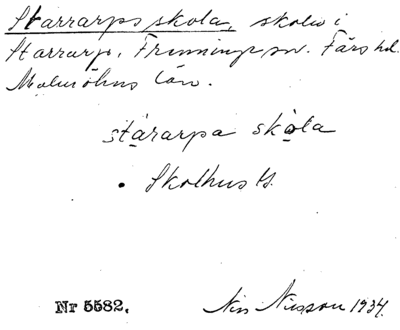 Starrarps skola, skola i
Starrarp, Frenninge sn. Färs hd.
Malmöhus län.
stạ̀rarpa skọ̀la
• Skolhus
Nr 5582. Nils Nilsson 1934.